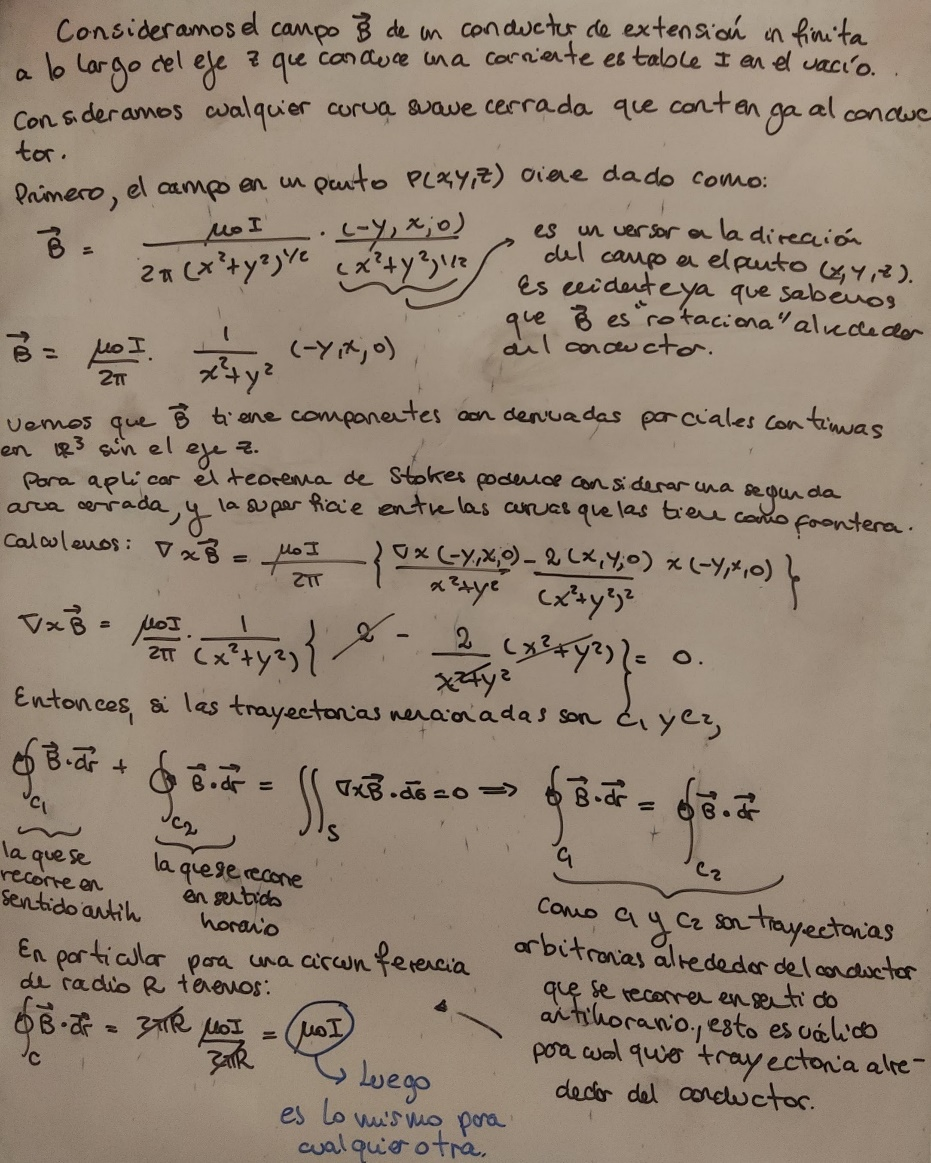 Consideramos el campo B⃗ de un conductor de extensión infinita
a lo largo del eje z que conduce una corriente estable I en el vacío.
Consideramos cualquier curva suave cerrada que contenga al conduc
tor.
Primero, el campo en un punto P(x,y,z) viene dado como:
B⃗ = μ₀I / (2π (x²+y²)^1/2) · (-y, x, 0) / (x²+y²)^1/2
es un versor en la dirección
del campo en el punto (x,y,z).
Es evidente ya que sabemos
que B⃗ es "rotaciona" alrededor
del conductor.
B⃗ = μ₀I / 2π · 1 / (x²+y²) (-y, x, 0)
vemos que B⃗ tiene componentes con derivadas parciales continuas
en ℝ³ sin el eje z.
Para aplicar el teorema de Stokes podemos considerar una segunda
curva cerrada, y la superficie entre las curvas que las tiene como frontera.
Calculemos: ∇×B⃗ = μ₀I / 2π { ∇×(-y,x,0) / (x²+y²) - 2(x,y,0) / (x²+y²)² × (-y,x,0) }
∇×B⃗ = μ₀I / 2π · 1 / (x²+y²) { 2 - 2 / (x²+y²) (x²+y²) } = 0.
Entonces, si las trayectorias mencionadas son C₁ y C₂,
∮_C₁ B⃗·dr⃗ + ∮_C₂ B⃗·dr⃗ = ∬_S ∇×B⃗·ds⃗ = 0 ⟹ ∮_C₁ B⃗·dr⃗ = ∮_C₂ B⃗·dr⃗
la que se
recorre en
sentido antih
la que se recorre
en sentido
horario
como C₁ y C₂ son trayectorias
arbitrarias alrededor del conductor
que se recorren en sentido
antihorario, esto es válido
para cualquier trayectoria alre-
dedor del conductor.
En particular para una circunferencia
de radio R tenemos:
∮_C B⃗·dr⃗ = 2πR μ₀I / 2πR = μ₀I
Luego
es lo mismo para
cualquier otra.